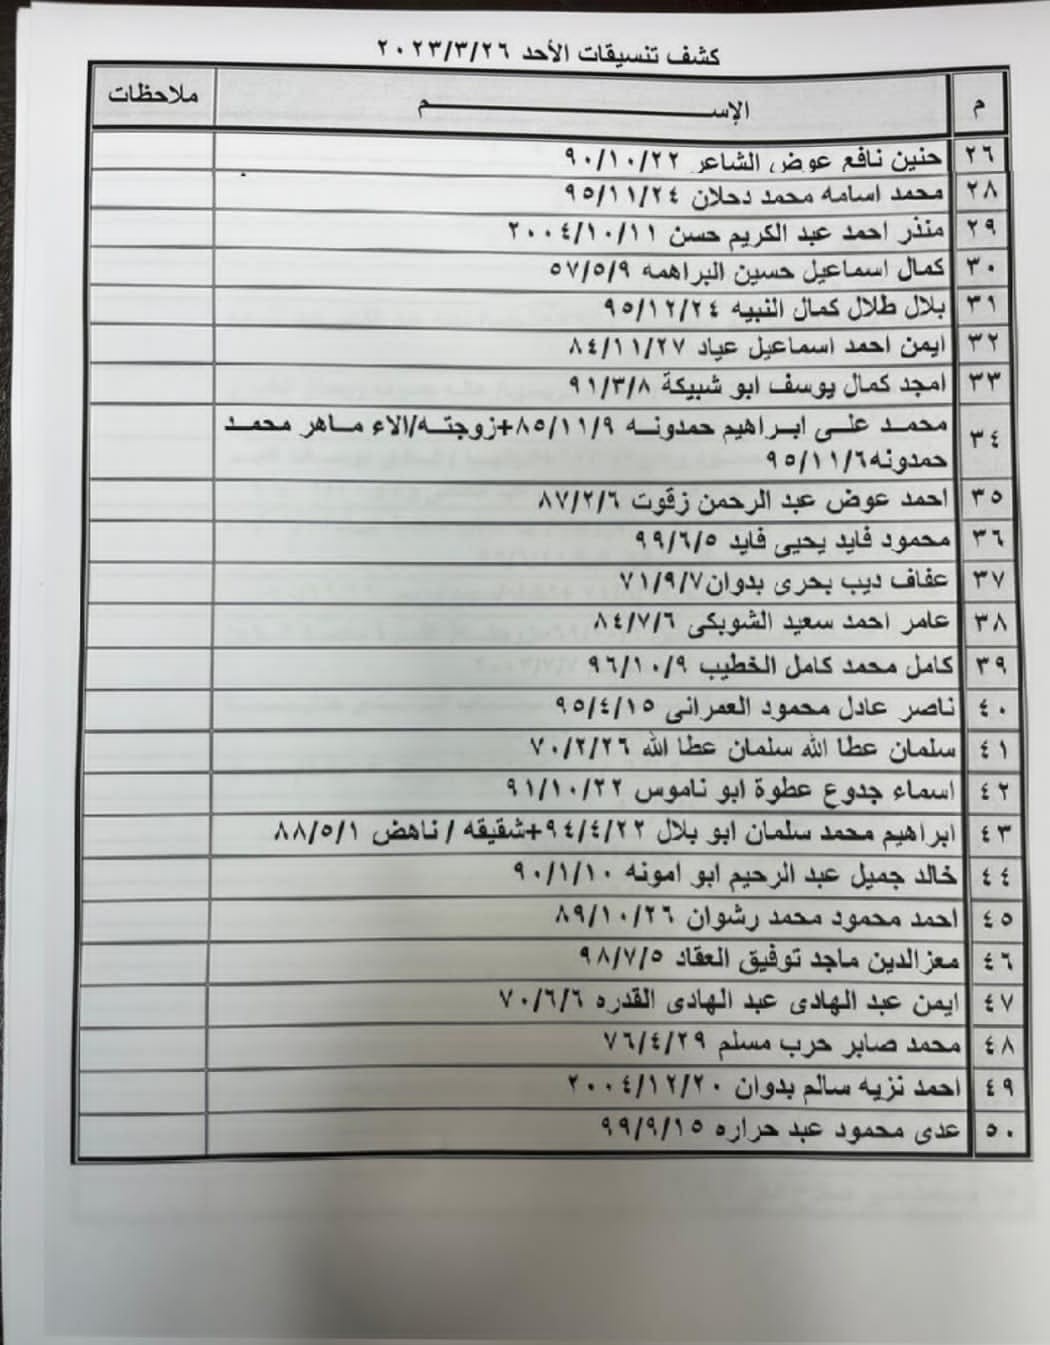 كشف تنسيقات الأحد ٢٠٢٣/٣/٢٦
م الإســــــــم ملاحظات
٢٦ حنين نافع عوض الشاعر ٩٠/١٠/٢٢
٢٨ محمد اسامه محمد دحلان ٩٥/١١/٢٤
٢٩ منذر احمد عبد الكريم حسن ٢٠٠٤/١٠/١١
٣٠ كمال اسماعيل حسين البراهمه ٥٧/٥/٩
٣١ بلال طلال كمال النبيه ٩٥/١٢/٢٤
٣٢ ايمن احمد اسماعيل عياد ٨٤/١١/٢٧
٣٣ امجد كمال يوسف ابو شبيكة ٩١/٣/٨
٣٤ محمد على ابراهيم حمدونه ٨٥/١١/٩+زوجته/الاء ماهر محمد
حمدونه٩٥/١١/٦
٣٥ احمد عوض عبد الرحمن زقوت ٨٧/٢/٦
٣٦ محمود فايد يحيى فايد ٩٩/٦/٥
٣٧ عفاف ديب بحرى بدوان٧١/٩/٧
٣٨ عامر احمد سعيد الشوبكى ٨٤/٧/٦
٣٩ كامل محمد كامل الخطيب ٩٦/١٠/٩
٤٠ ناصر عادل محمود العمرانى ٩٥/٤/١٥
٤١ سلمان عطا الله سلمان عطا الله ٧٠/٢/٢٦
٤٢ اسماء جدوع عطوة ابو ناموس ٩١/١٠/٢٢
٤٣ ابراهيم محمد سلمان ابو بلال ٩٤/٤/٢٢+شقيقه / ناهض ٨٨/٥/١
٤٤ خالد جميل عبد الرحيم ابو امونه ٩٠/١/١٠
٤٥ احمد محمود محمد رشوان ٨٩/١٠/٢٦
٤٦ معزالدين ماجد توفيق العقاد ٩٨/٧/٥
٤٧ ايمن عبد الهادى عبد الهادى القدره ٧٠/٦/٦
٤٨ محمد صابر حرب مسلم ٧٦/٤/٢٩
٤٩ احمد نزيه سالم بدوان ٢٠٠٤/١٢/٢٠
٥٠ عدى محمود عبد حراره ٩٩/٩/١٥